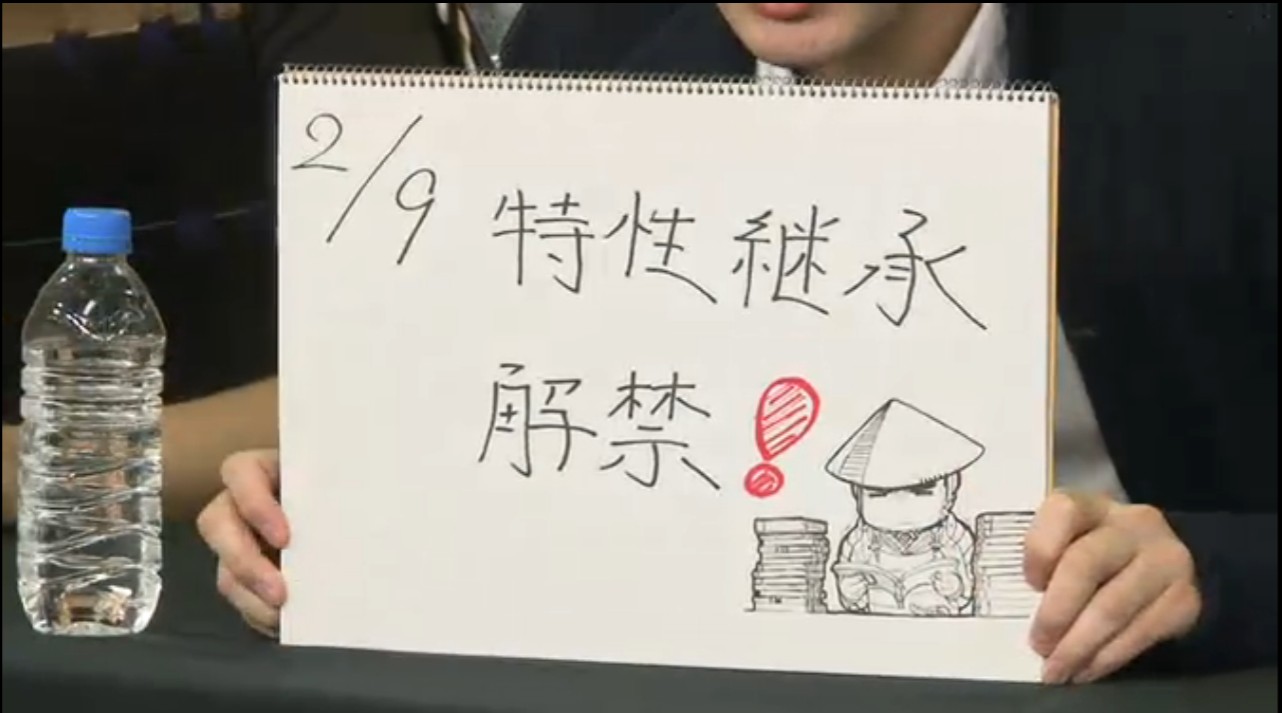 2/9
特性継承
解禁!